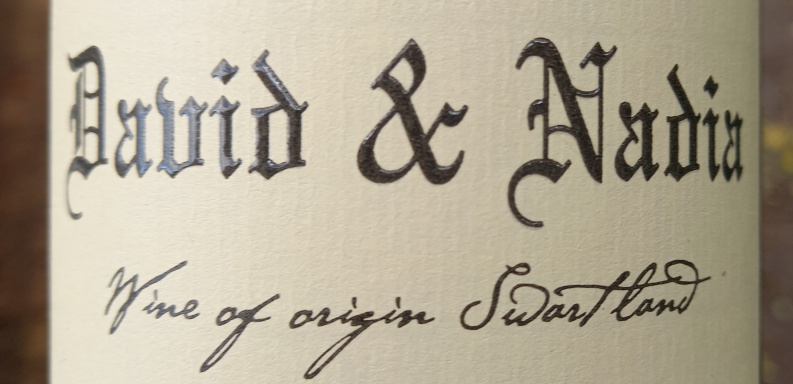 David & Nadia
Wine of origin Swartland